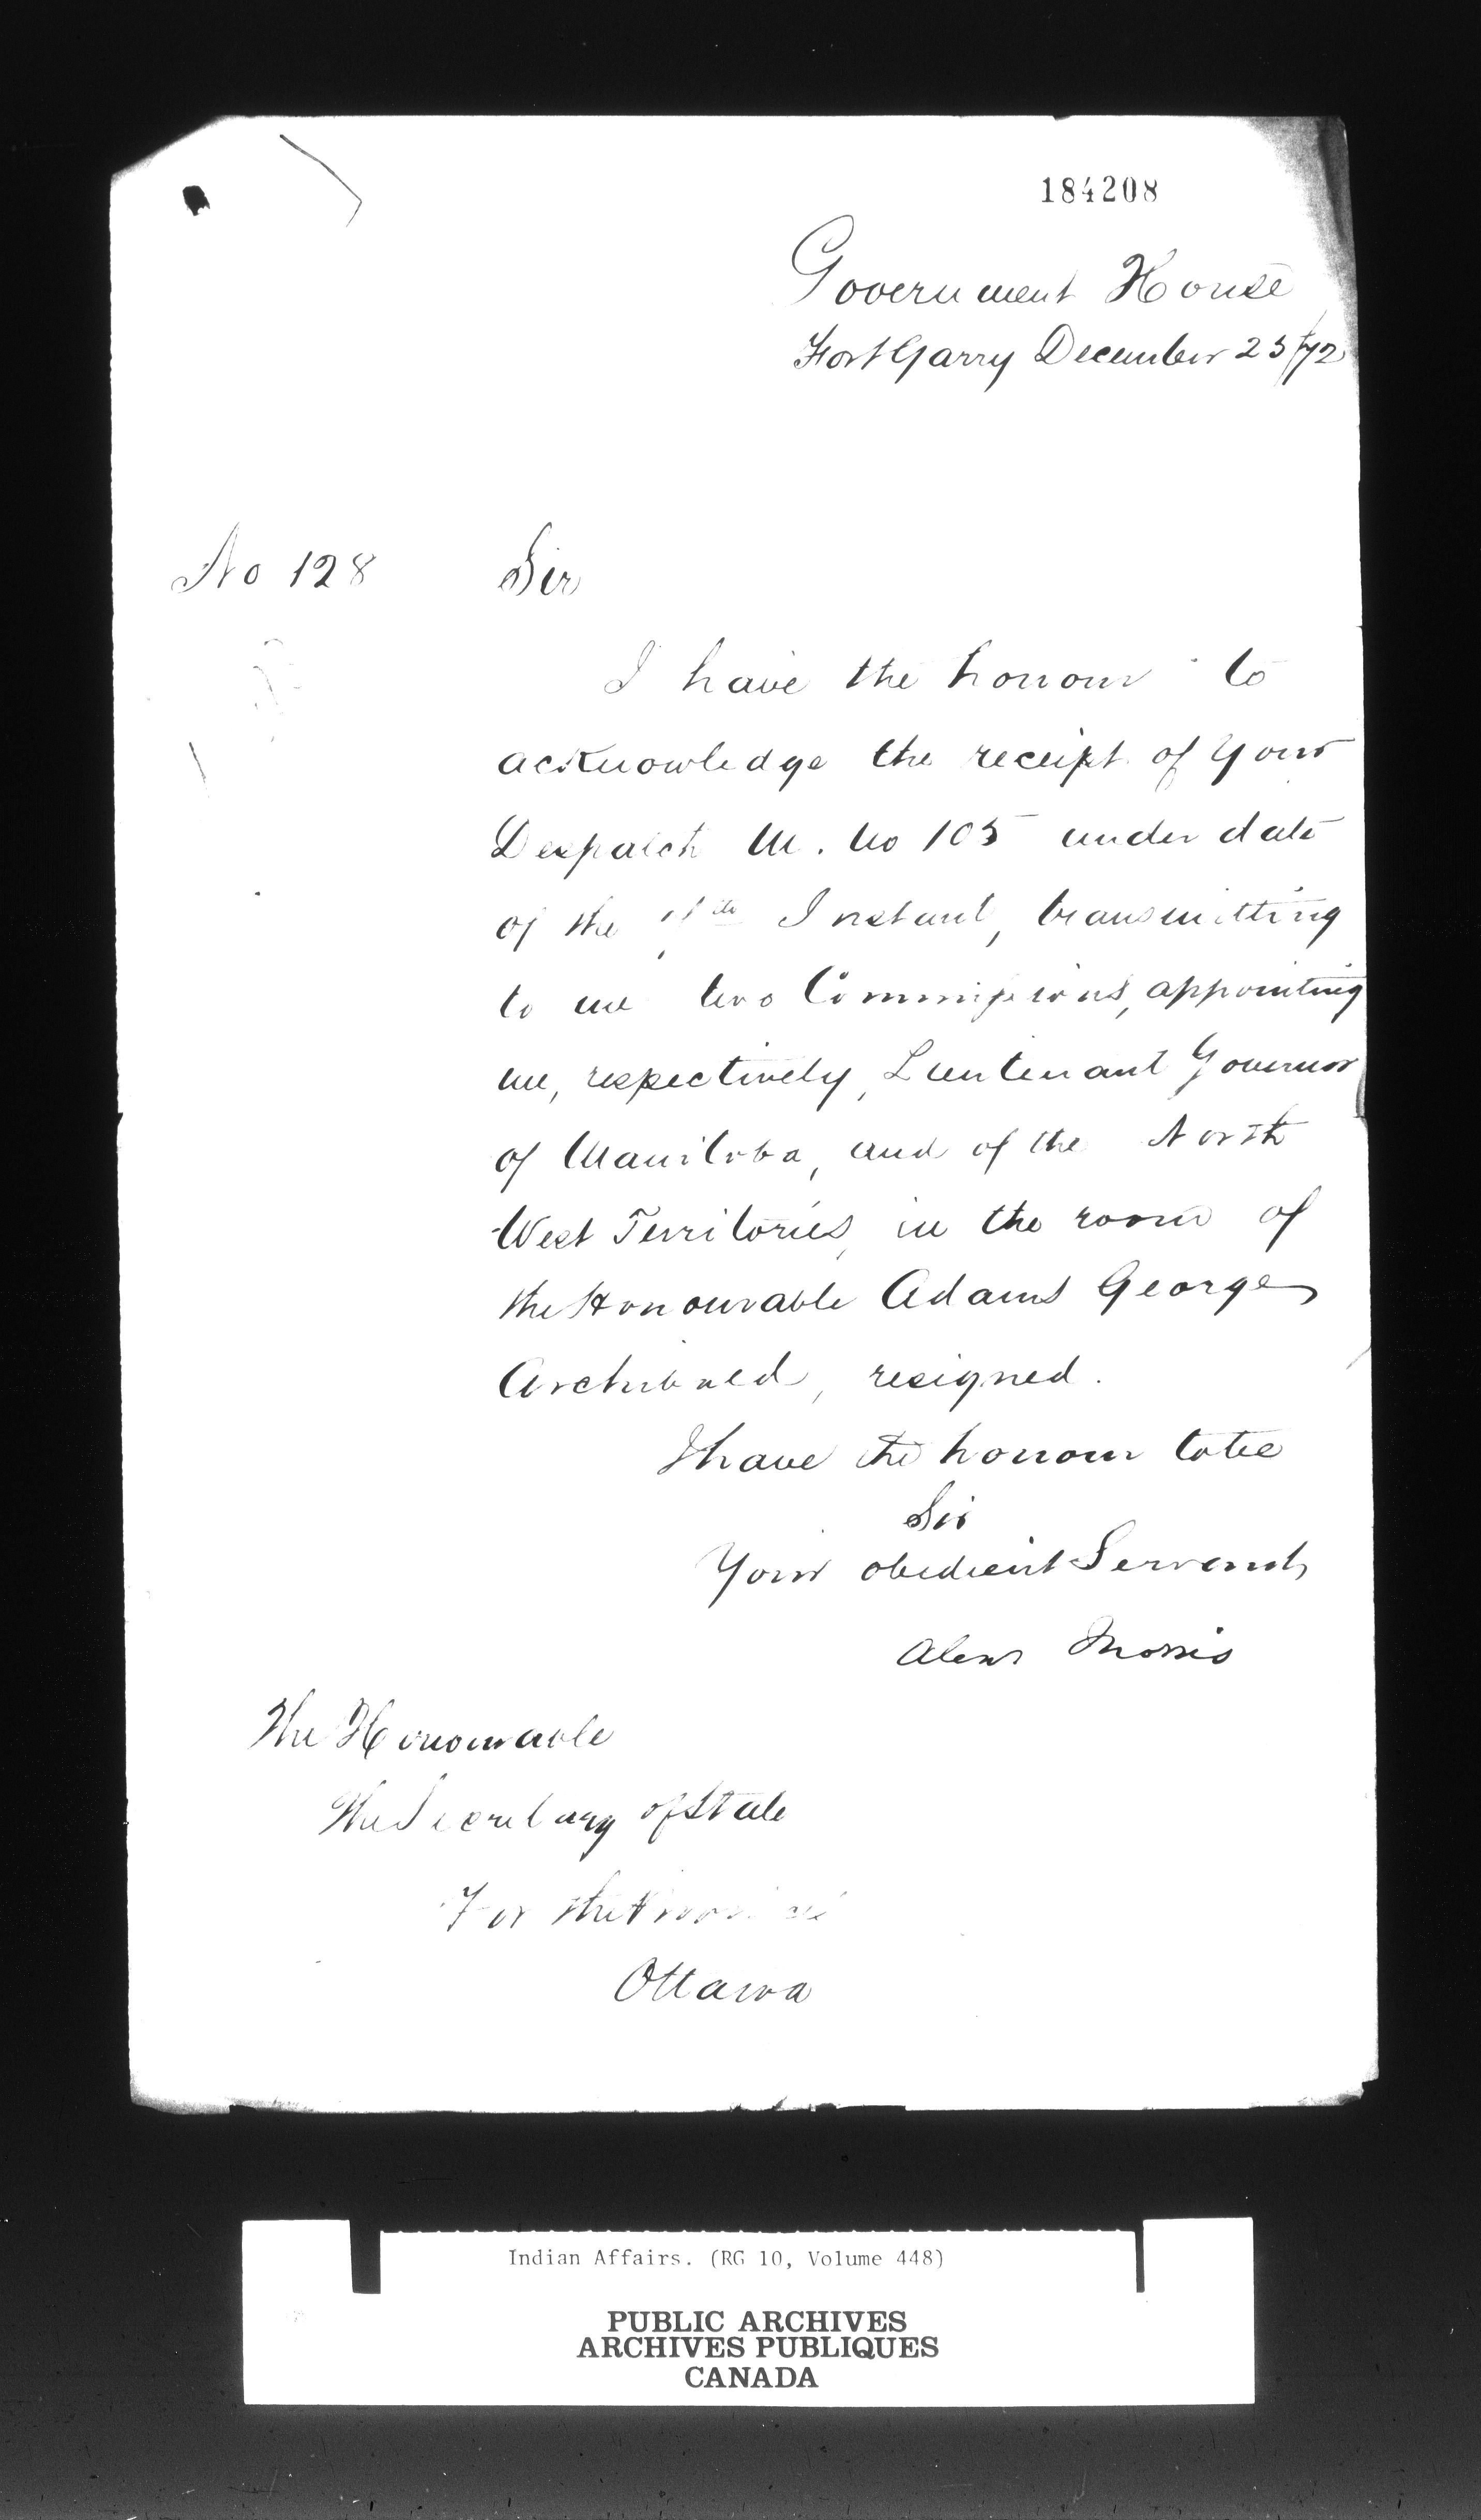 184208
Government House
Fort Garry December 23/72
No 128
Sir
I have the honour to
acknowledge the receipt of Your
Despatch M. No 105 under date
of the Instant, transmitting
to me two Commissions, appointing
me, respectively, Lieutenant Governor
of Manitoba, and of the North
West Territories, in the room of
the Honourable Adams George
Archibald, resigned.
I have the honour to be
Sir
Your obedient Servant,
Alexr Morris
The Honourable
The Secretary of State
For the Provinces
Ottawa
Indian Affairs. (RG 10, Volume 448)
PUBLIC ARCHIVES
ARCHIVES PUBLIQUES
CANADA